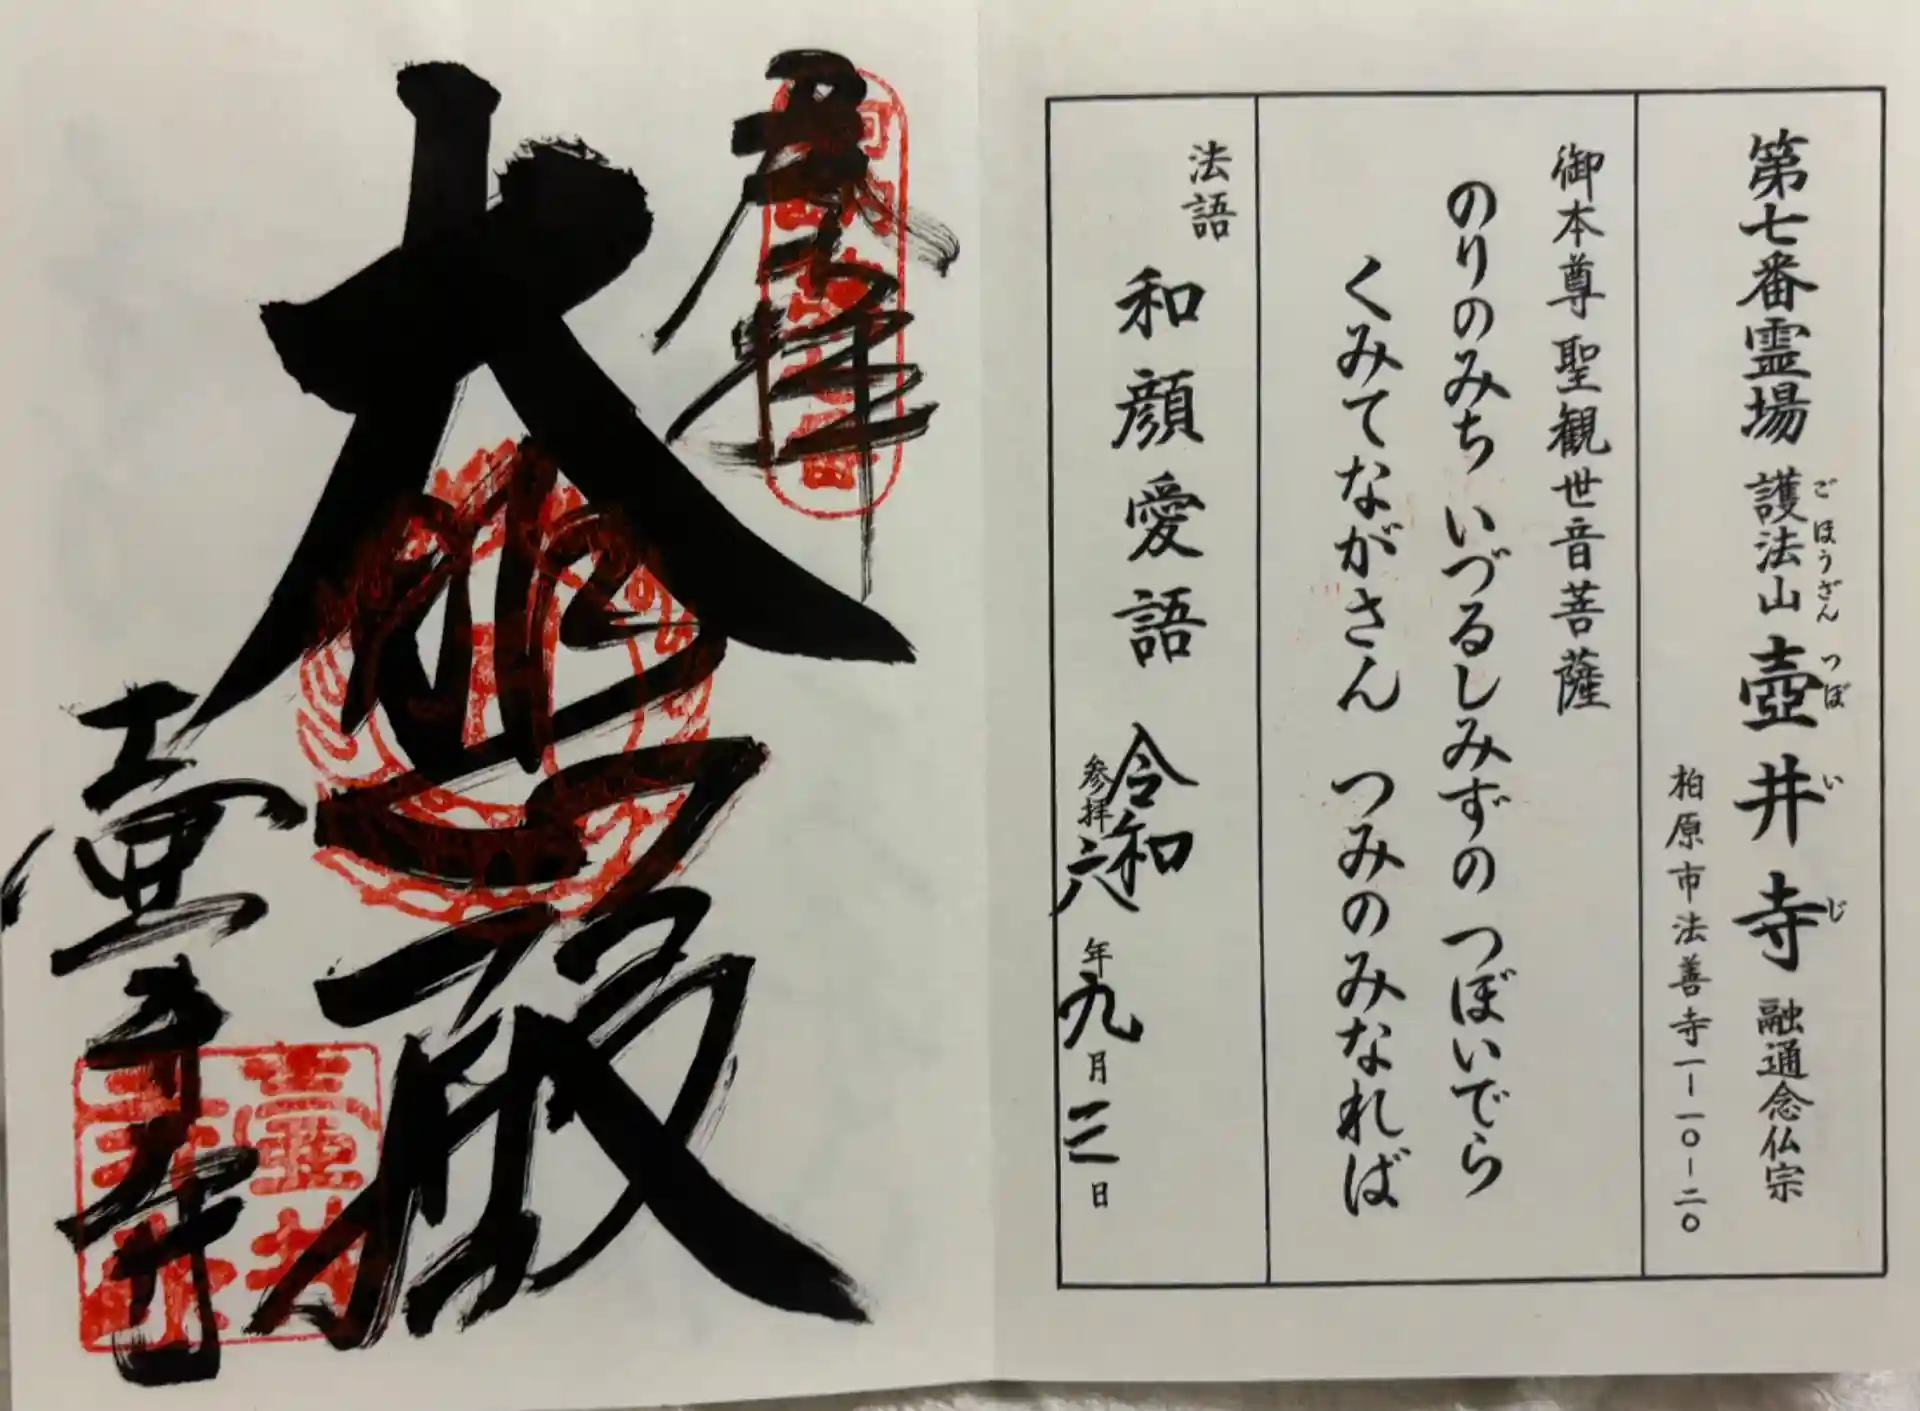 第七番霊場 護法山 壺井寺 融通念仏宗
ごほうざん つぼいじ
柏原市法善寺一ー一〇ー二〇
御本尊 聖観世音菩薩
のりのみち いづるしみずの つぼいでら
くみてながさん つみのみなれば
法語
和顔愛語
令和
参拝六年九月三日
奉拝
大悲殿
壺井寺
壺井